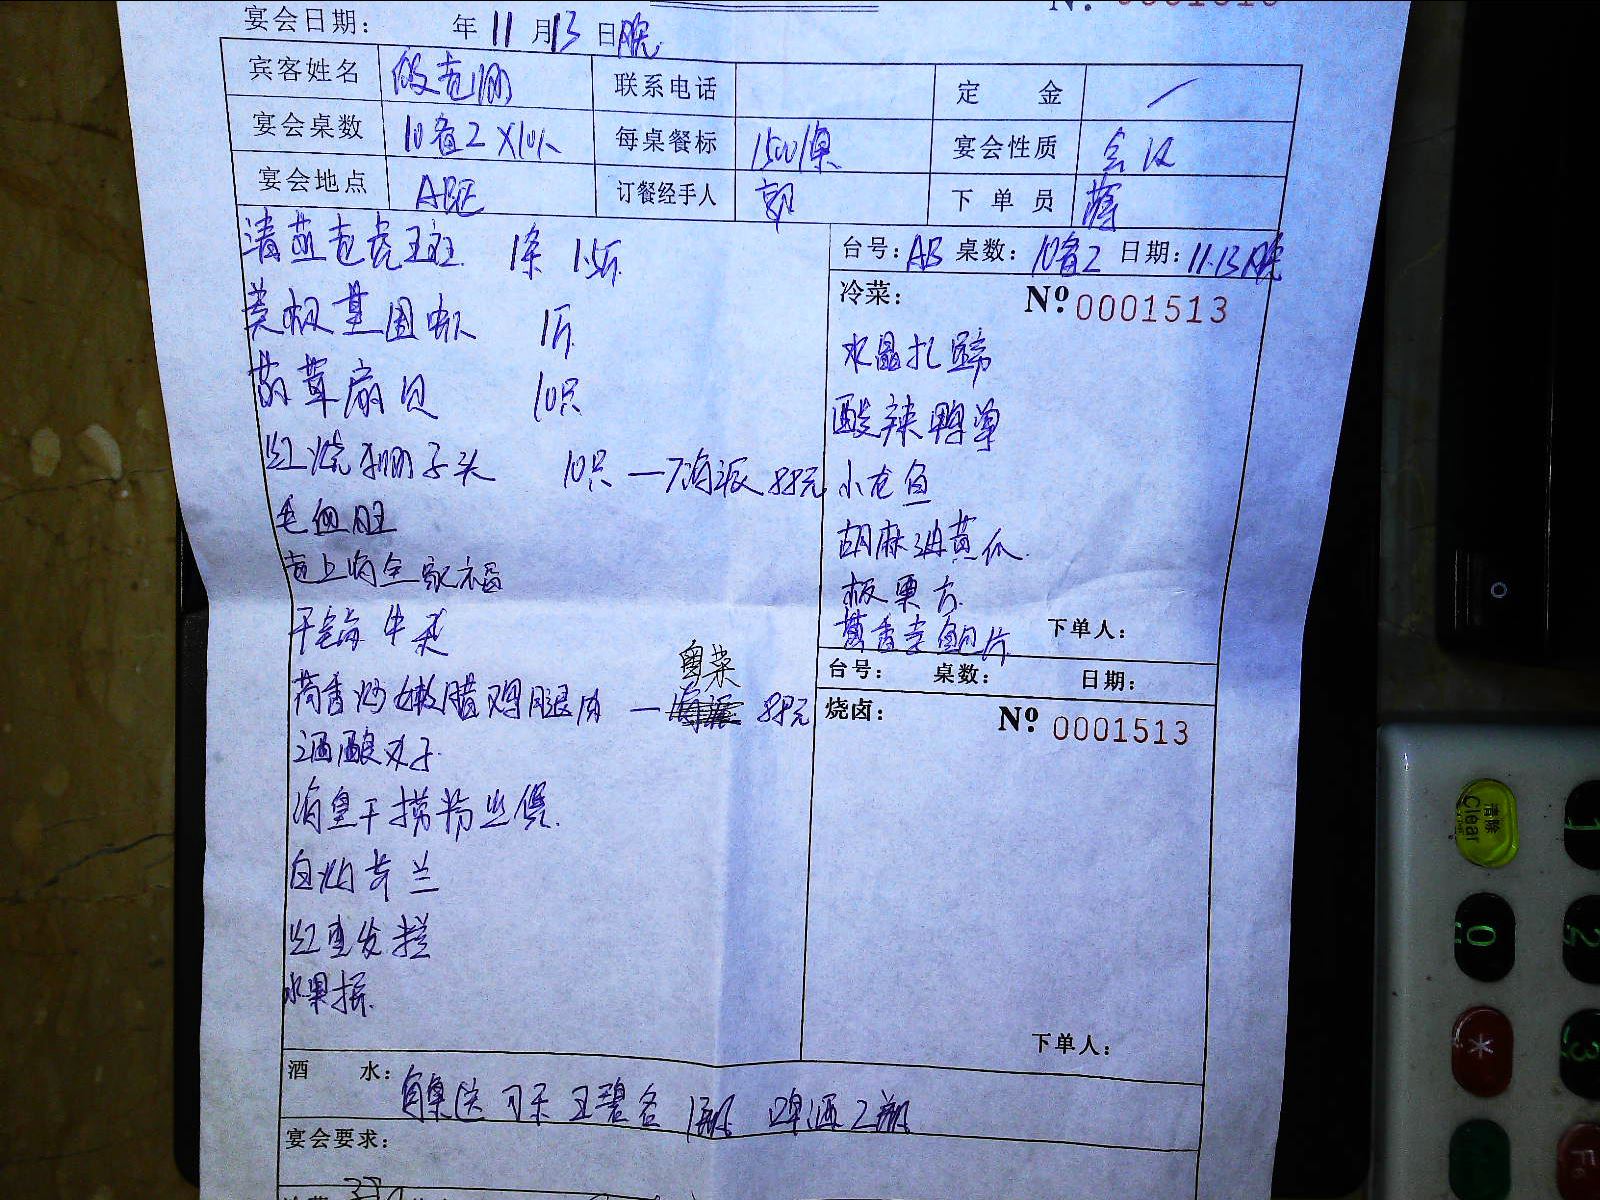 宴会日期: 年 11 月 13 日 晚
宾客姓名 段老师 联系电话 定 金 /
宴会桌数 10备2×10人 每桌餐标 1500/桌 宴会性质 会议
宴会地点 AB区 订餐经手人 郭 下单员 蒋
台号: AB 桌数: 10备2 日期: 11.13晚
清蒸老虎斑 1条 1.5斤
美极基围虾 1斤
扇贝 10只
红烧狮子头 10只 — 海派 88元
毛血旺
老上海全家福
干锅牛
香炒嫩腊鸡腿肉 — 粤菜 88元
酒酿圆子
海皇干捞粉丝煲
白灼芥兰
红枣发糕
水果拼
冷菜: Nº 0001513
水晶扎蹄
酸辣鸭掌
小龙鱼
胡麻油黄瓜
板栗
香 鲍片
下单人:
台号: 桌数: 日期:
烧卤: Nº 0001513
下单人:
酒 水: 每桌送 可乐 王老吉 1瓶 啤酒2瓶
宴会要求: